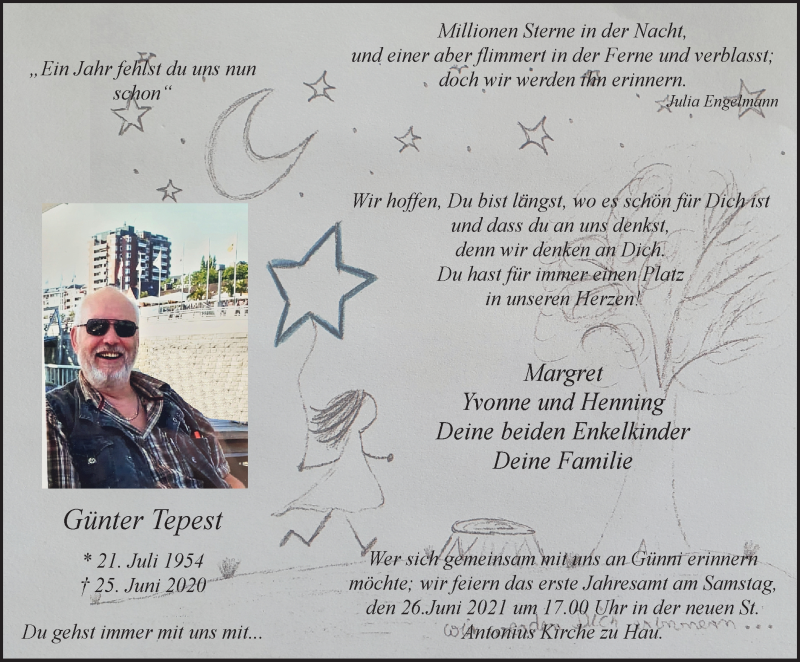 „Ein Jahr fehlst du uns nun
schon“
Millionen Sterne in der Nacht,
und einer aber flimmert in der Ferne und verblasst;
doch wir werden ihn erinnern.
Julia Engelmann
Wir hoffen, Du bist längst, wo es schön für Dich ist
und dass du an uns denkst,
denn wir denken an Dich.
Du hast für immer einen Platz
in unseren Herzen!
Margret
Yvonne und Henning
Deine beiden Enkelkinder
Deine Familie
Günter Tepest
* 21. Juli 1954
† 25. Juni 2020
Du gehst immer mit uns mit...
Wer sich gemeinsam mit uns an Günni erinnern
möchte; wir feiern das erste Jahresamt am Samstag,
den 26.Juni 2021 um 17.00 Uhr in der neuen St.
Antonius Kirche zu Hau.
wir werden Dich erinnern...